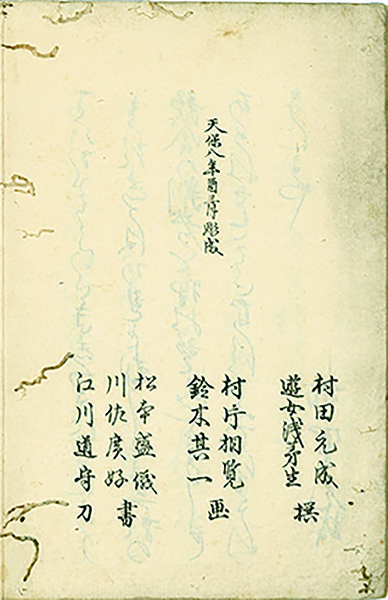 天保八年酉月彫成
村田元成
遊女浅茅生 撰
村片相覧
鈴木其一 画
松本盛儀
川佐廣好 書
江川道守 刀